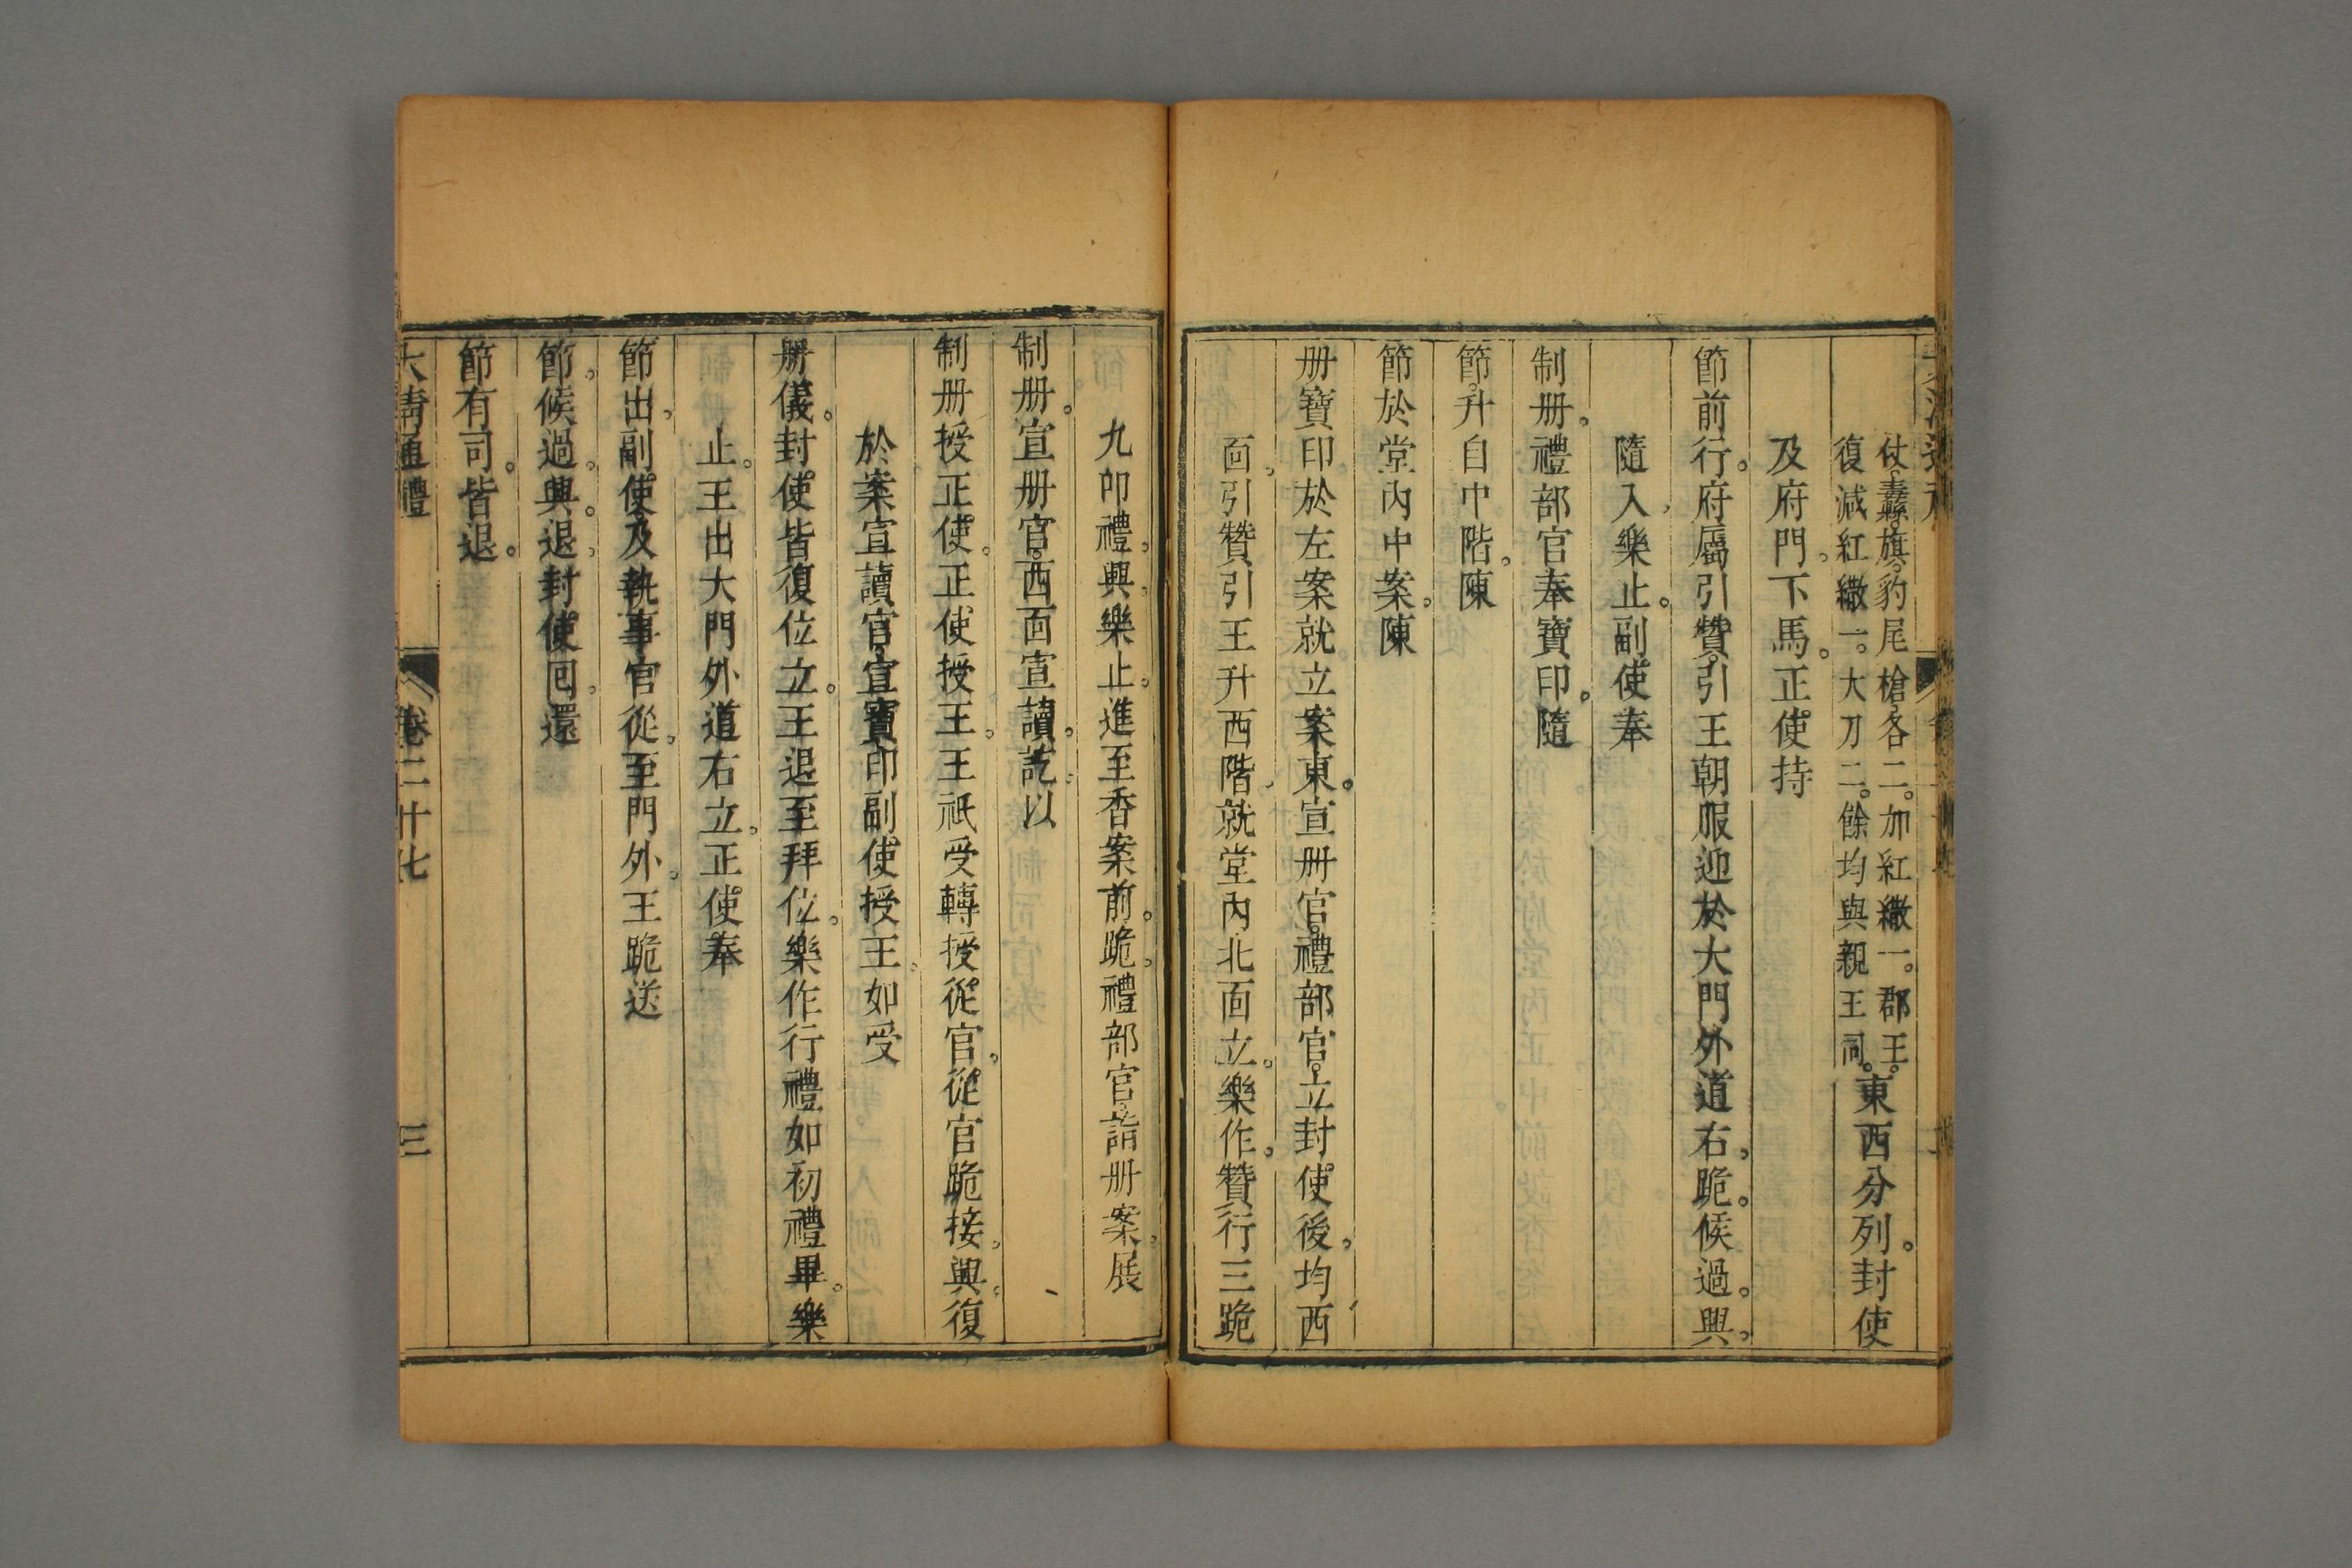 仗。纛。旗。豹尾槍。各二。加紅繖一。郡王。
復減紅繖一。大刀二。餘均與親王同。
東西分列。封使
及府門。下馬。正使持
節前行。府屬引贊。引王朝服迎於大門外道右。跪。候過。興。
隨入。樂止。副使奉
制册。禮部官奉寶印。隨
節。升自中階。陳
節於堂內中案。陳
册寶印於左案。就立案東。宣册官。禮部官。立封使後。均西
面。引贊引王升西階。就堂內北面立。樂作。贊行三跪
九叩禮。興。樂止。進至香案前。跪。禮部官。詣册案。展
制册。宣册官。西面宣讀。訖。以
制册授正使。正使授王。王祇受轉授從官。從官跪接。興。復
於案宣讀官。宣寶印副使授王。如受
册儀。封使皆復位立。王退至拜位。樂作行禮如初禮畢。樂
止。王出大門外道右立。正使奉
節出。副使及執事官從。至門外。王跪送
節。候過。興。退。封使回還
節有司。皆退。
大淸通禮 卷二十七 三